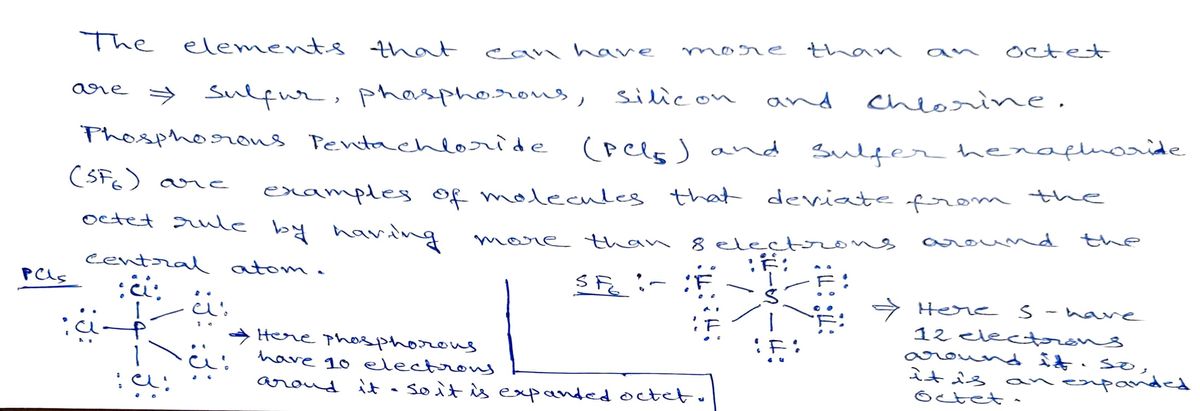 The elements that can have more than an octet
are ⇒ Sulfur, phosphorous, silicon and chlorine.
Phosphorous Pentachloride (PCl5) and Sulfer hexafluoride
(SF6) are examples of molecules that deviate from the
octet rule by having more than 8 electrons around the
central atom.
PCl5
:Cl:
Cl:
:Cl-P
Cl:
:Cl:
→ Here phosphorous
have 10 electrons
aroud it. so it is expanded octet.
SF6 :-
:F:
:F
F:
S
:F
F:
:F:
⇒ Here S - have
12 electrons
around it. so,
it is an expanded
octet.